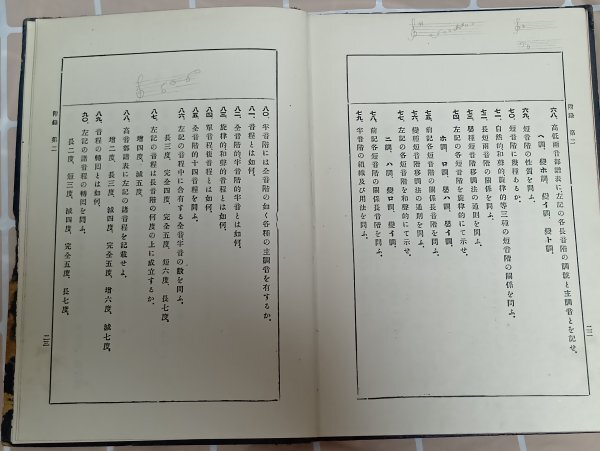 附錄 第二
六八、高低兩音部譜表に左記の各長音階の調號と主調音とを記せ。
ハ調、變ホ調、變イ調、變ト調、
六九、短音階の性質を問ふ。
七〇、短音階に幾種ありや。
七一、自然的和聲的旋律的等三種の短音階の關係を問ふ。
七二、長短兩音階の關係を問ふ。
七三、嬰種短音階移調法の通則を問ふ。
七四、左記の各短音階を旋律的にて示せ。
ホ調、ロ調、嬰ハ調、嬰イ調、
七五、前記各短音階の關係長音階を問ふ。
七六、變種短音階移調法の通則を問ふ。
七七、左記の各短音階を和聲的にて示せ。
ニ調、ハ調、變ロ調、變イ調、
七八、前記各短音階の關係長音階を問ふ。
七九、半音階の組織及び用法を問ふ。
二二
八〇、半音階には全音階の如く各種の主調音を有するか。
八一、音程とは如何。
八二、全音階的半音階的半音とは如何。
八三、旋律的和聲的音程とは如何。
八四、單音程複音程とは如何。
八五、全音階的十四音程を問ふ。
八六、左記の音程中に含有する全音半音の數を問ふ。
長三度、完全四度、完全五度、短六度、長七度、
八七、左記の音程は長音階の何度の上に成立するか。
增四度、減五度、
八八、高音部譜表に左記の諸音程を記載せよ。
增二度、長三度、減四度、完全五度、增六度、減七度、
八九、音程の轉回とは如何。
九〇、左記の諸音程の轉回を問ふ。
長二度、短三度、減四度、完全五度、長七度、
附錄 第二
二三